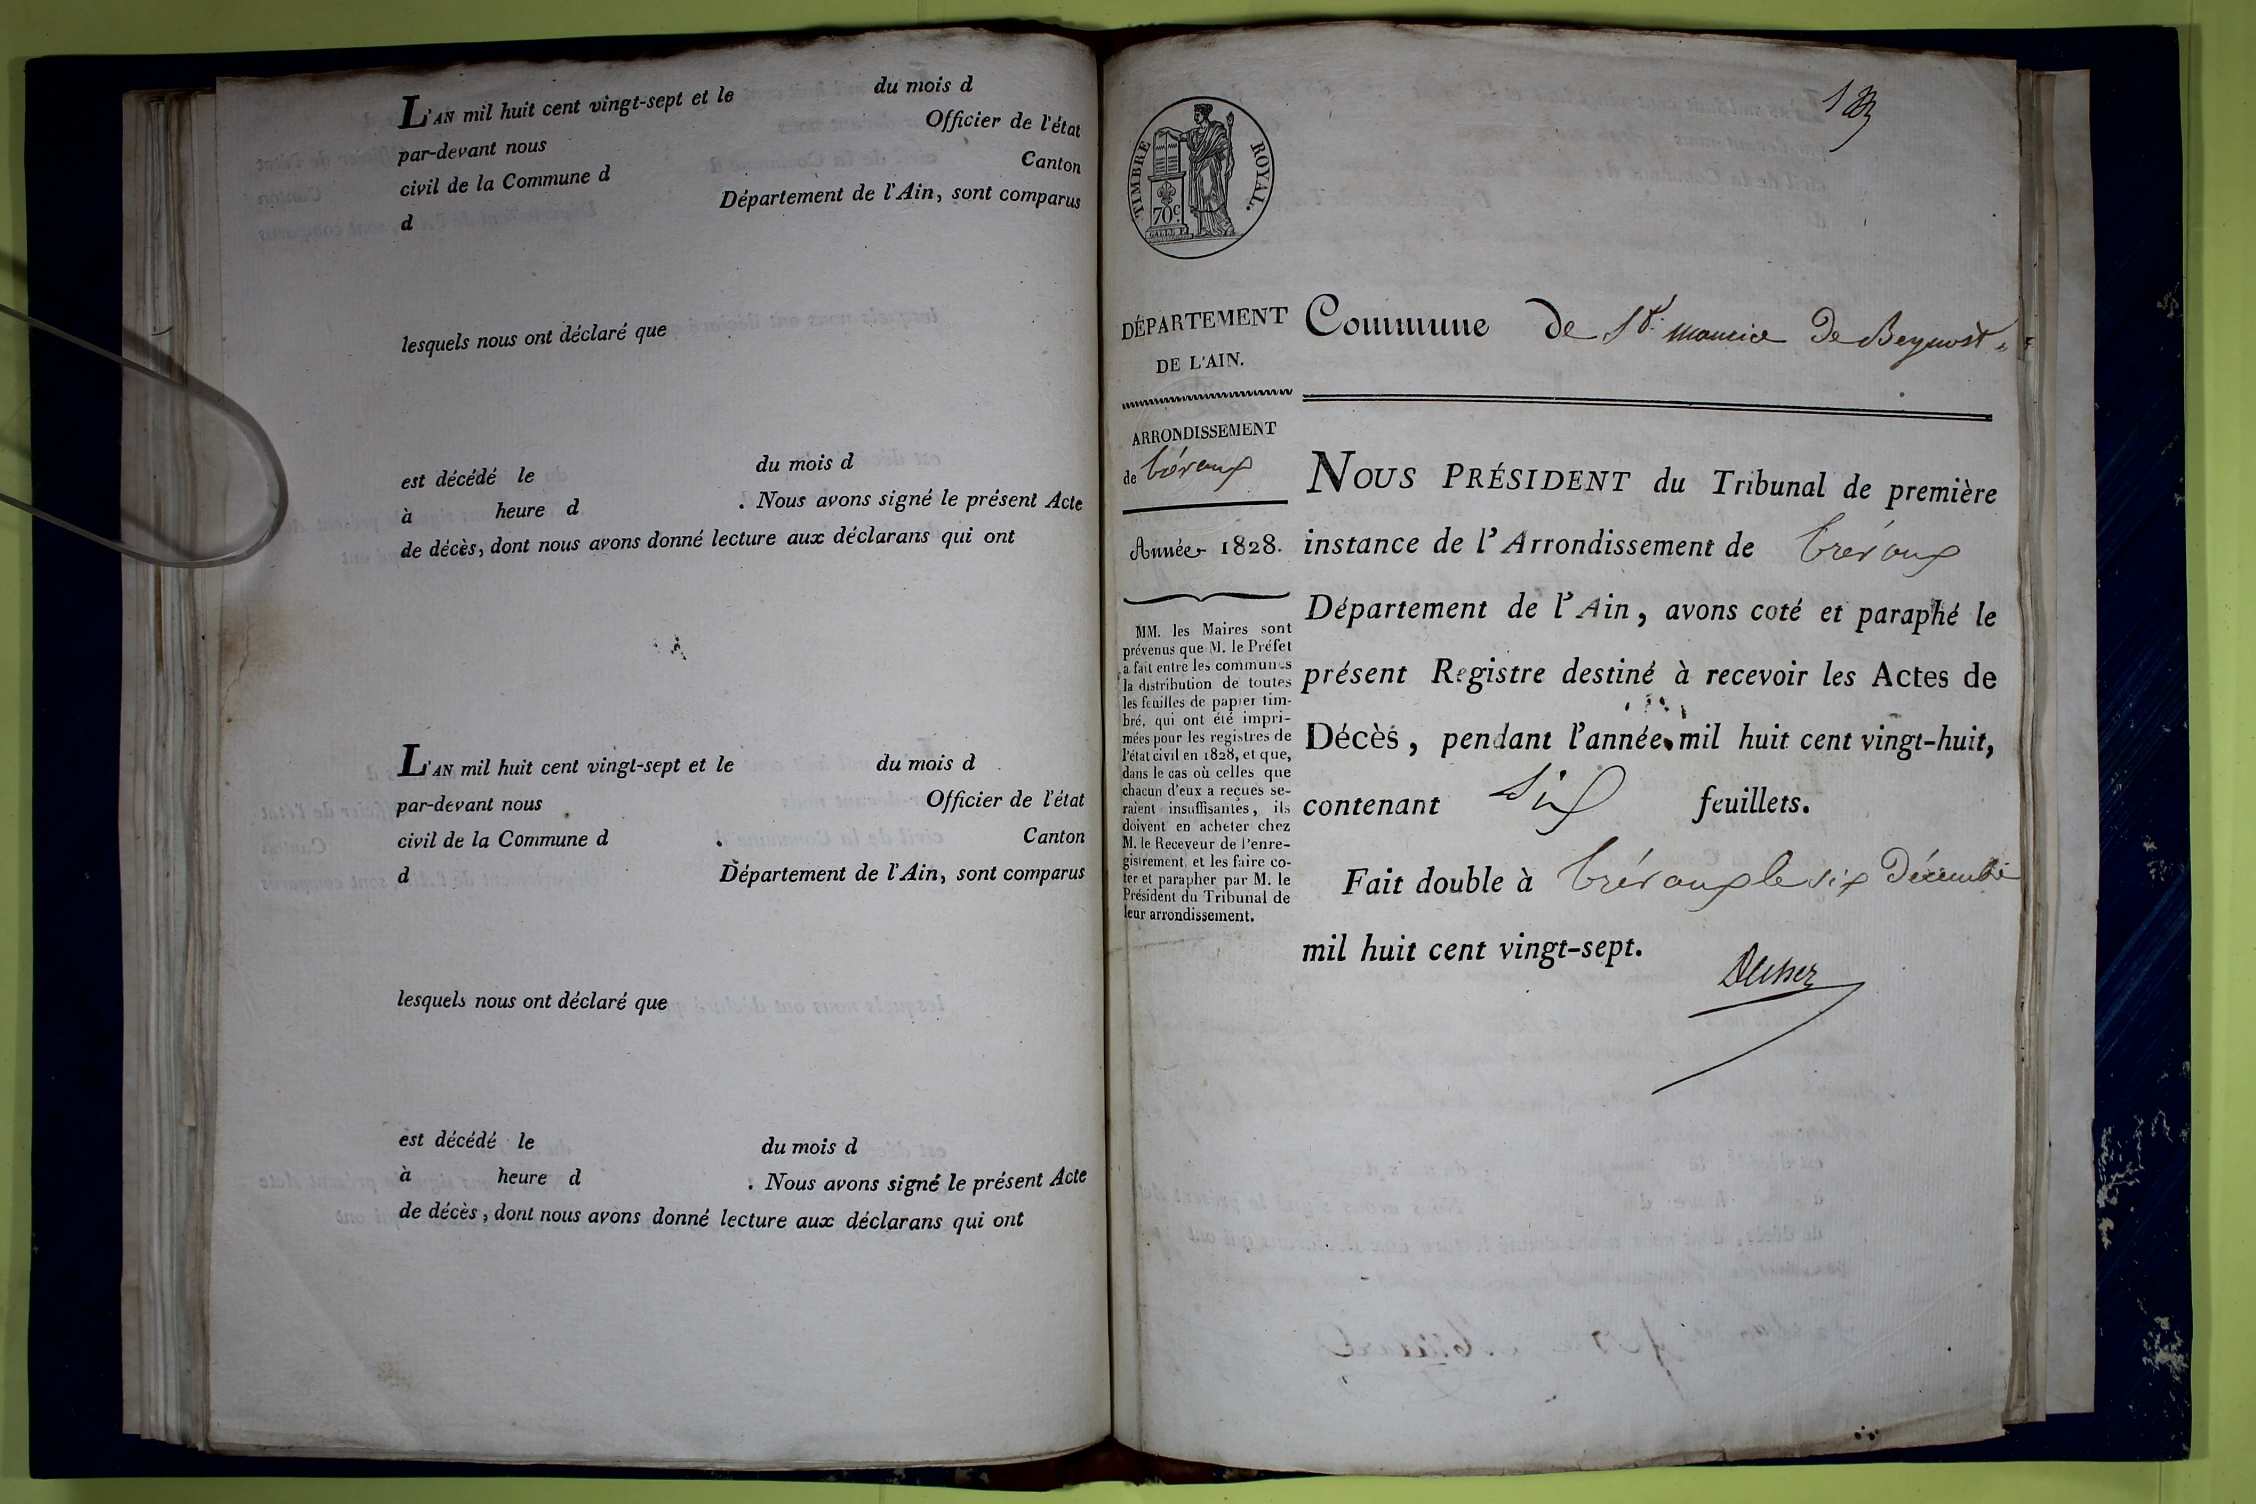 L'AN mil huit cent vingt-sept et le du mois d
par-devant nous Officier de l'état
civil de la Commune d Canton
d Département de l'Ain, sont comparus
lesquels nous ont déclaré que
est décédé le du mois d
à heure d . Nous avons signé le présent Acte
de décès, dont nous avons donné lecture aux déclarans qui ont
L'AN mil huit cent vingt-sept et le du mois d
par-devant nous Officier de l'état
civil de la Commune d Canton
d Département de l'Ain, sont comparus
lesquels nous ont déclaré que
est décédé le du mois d
à heure d . Nous avons signé le présent Acte
de décès, dont nous avons donné lecture aux déclarans qui ont
TIMBRE ROYAL.
70c.
DÉPARTEMENT
DE L'AIN.
ARRONDISSEMENT
de Trévoux
Année 1828.
MM. les Maires sont
prévenus que M. le Préfet
a fait entre les communes
la distribution de toutes
les feuilles de papier tim-
bré, qui ont été impri-
mées pour les registres de
l'état civil en 1828, et que,
dans le cas où celles que
chacun d'eux a reçues se-
raient insuffisantes, ils
doivent en acheter chez
M. le Receveur de l'enre-
gistrement, et les faire co-
ter et parapher par M. le
Président du Tribunal de
leur arrondissement.
Commune de St. Maurice De Beynost
NOUS PRÉSIDENT du Tribunal de première
instance de l'Arrondissement de Trévoux
Département de l'Ain, avons coté et paraphé le
présent Registre destiné à recevoir les Actes de
Décès, pendant l'année mil huit cent vingt-huit,
contenant Six feuillets.
Fait double à Trévoux le six Décembre
mil huit cent vingt-sept.